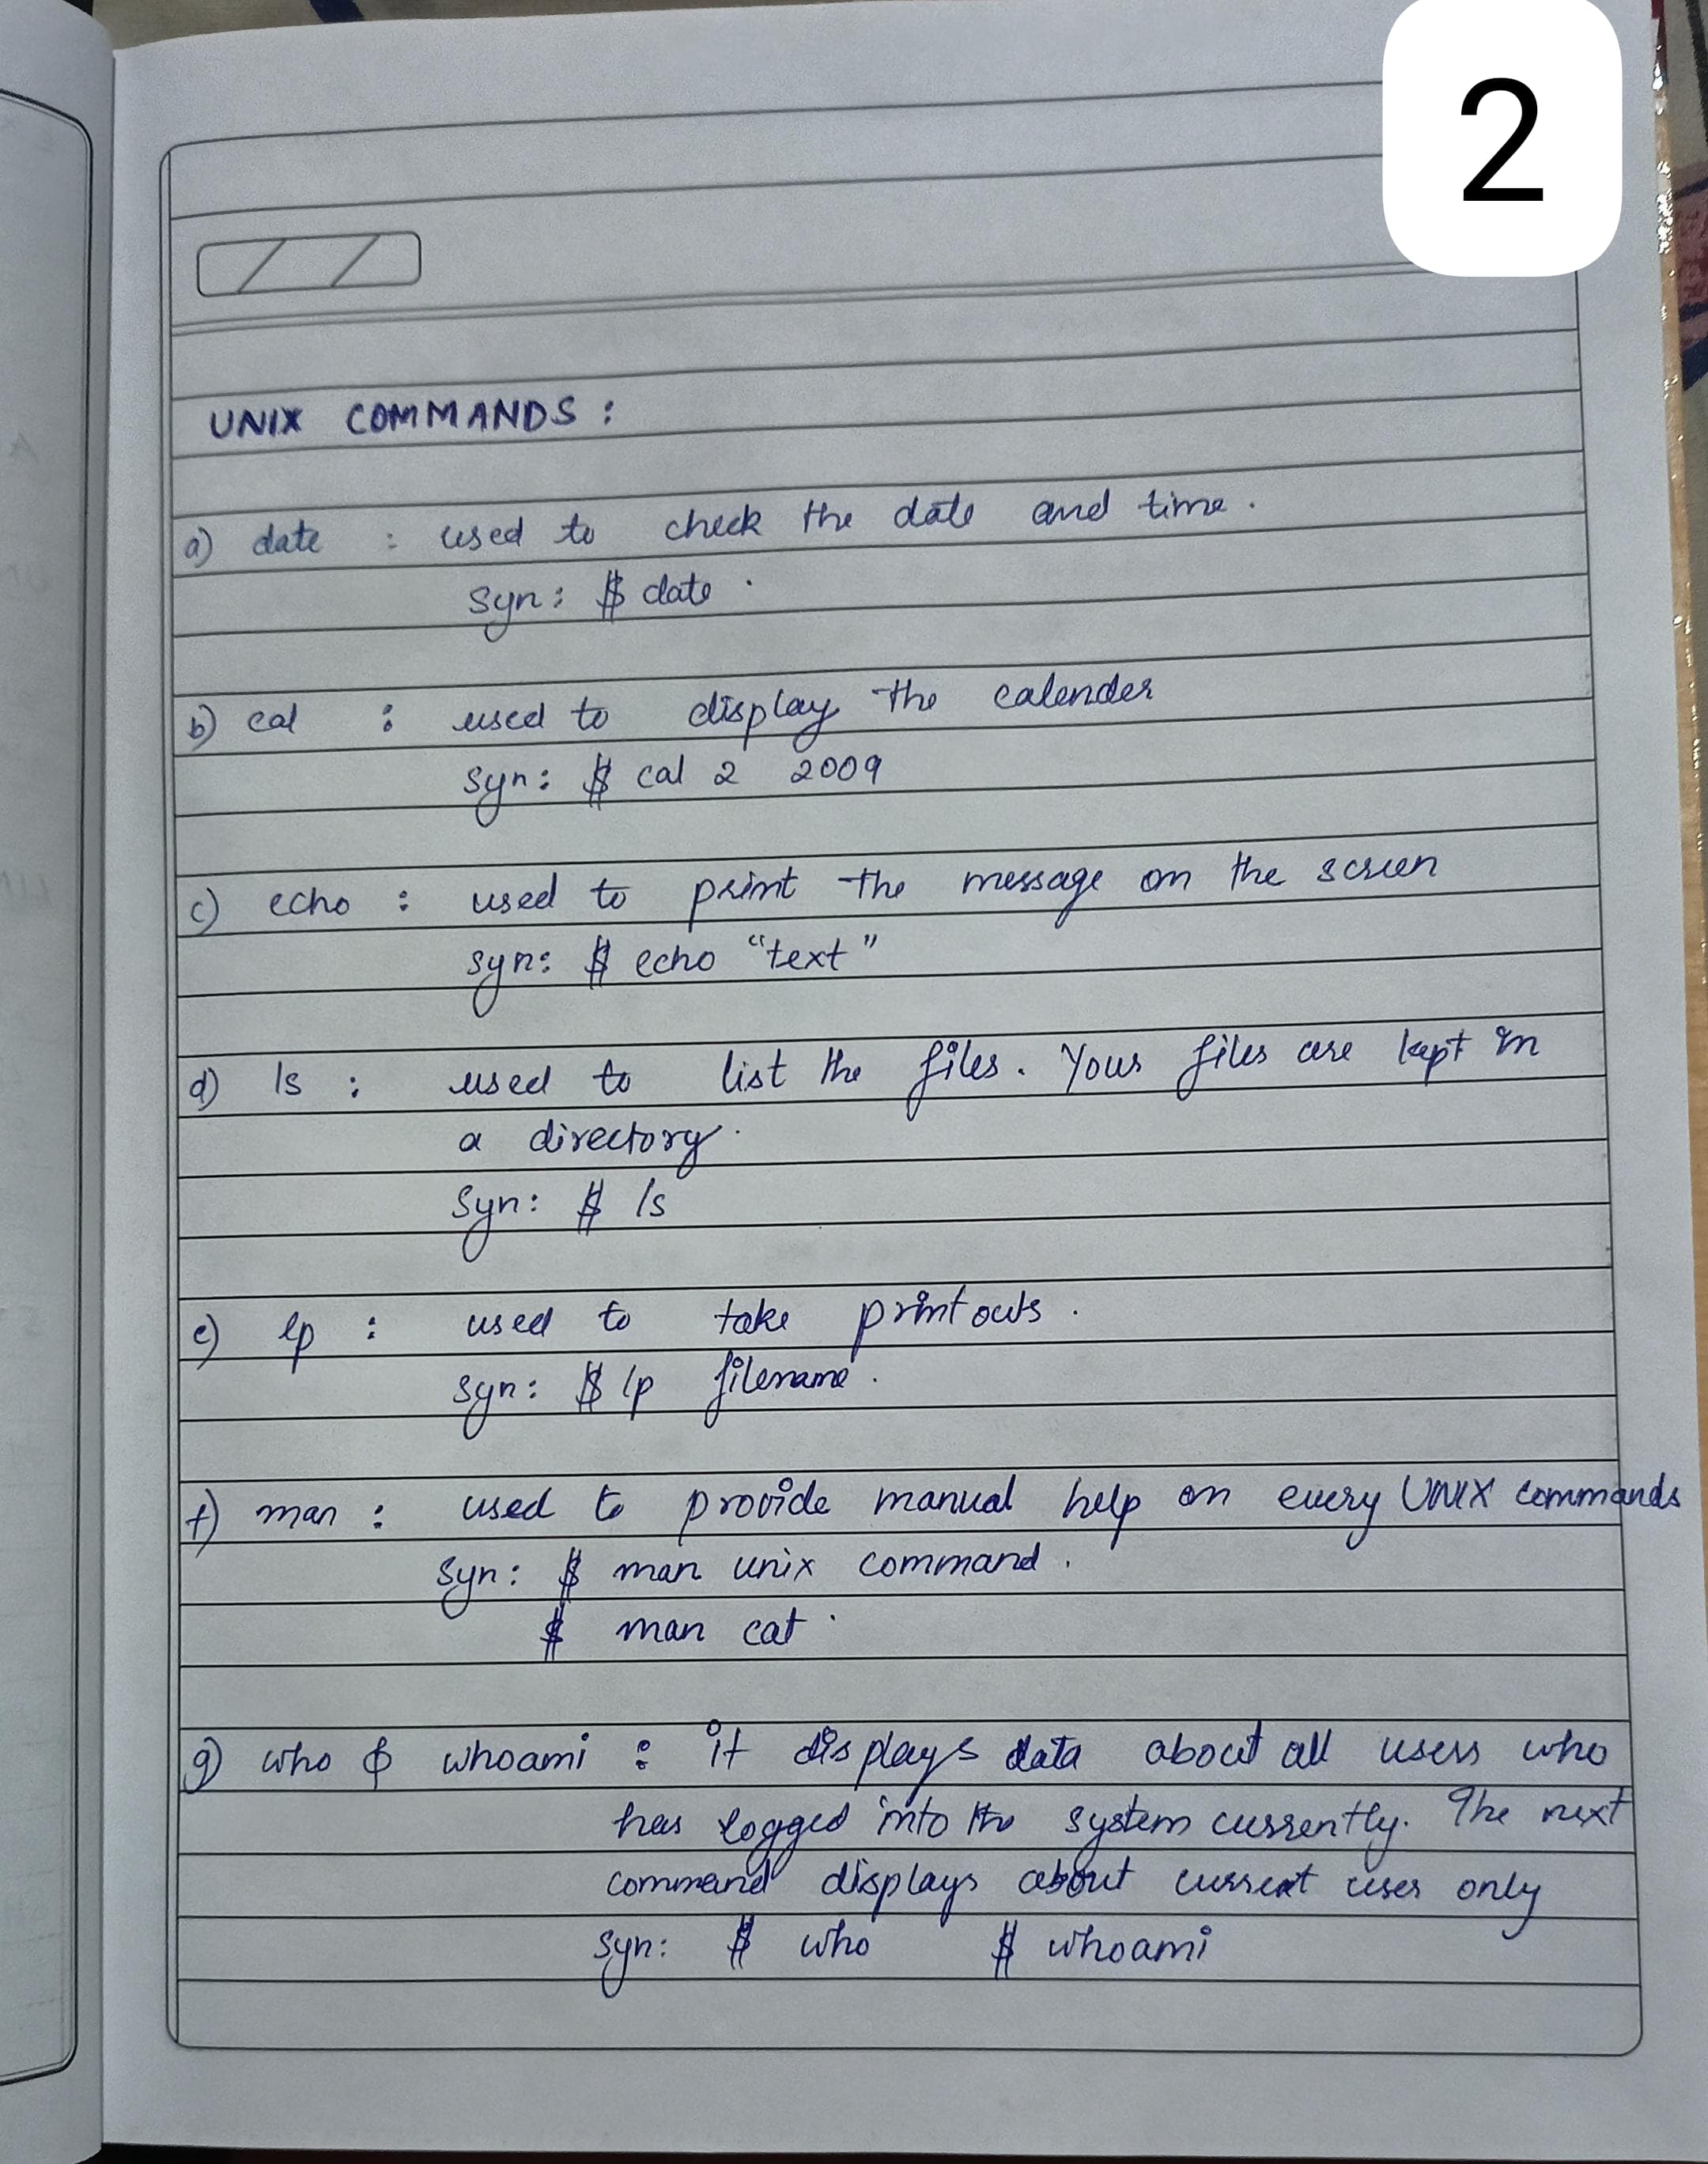 2
UNIX COMMANDS :
a) date : used to check the date and time.
Syn: $ date.
b) cal : used to display the calender
Syn: $ cal 2 2009
c) echo : used to print the message on the screen
Syn: $ echo "text"
d) ls : used to list the files. Your files are kept in
a directory.
Syn: $ ls
e) lp : used to take printouts.
Syn: $ lp filename.
f) man : used to provide manual help on every UNIX commands
Syn: $ man unix command.
$ man cat.
g) who & whoami : it displays data about all users who
has logged into the system currently. The next
command displays about current user only
Syn: $ who $ whoami